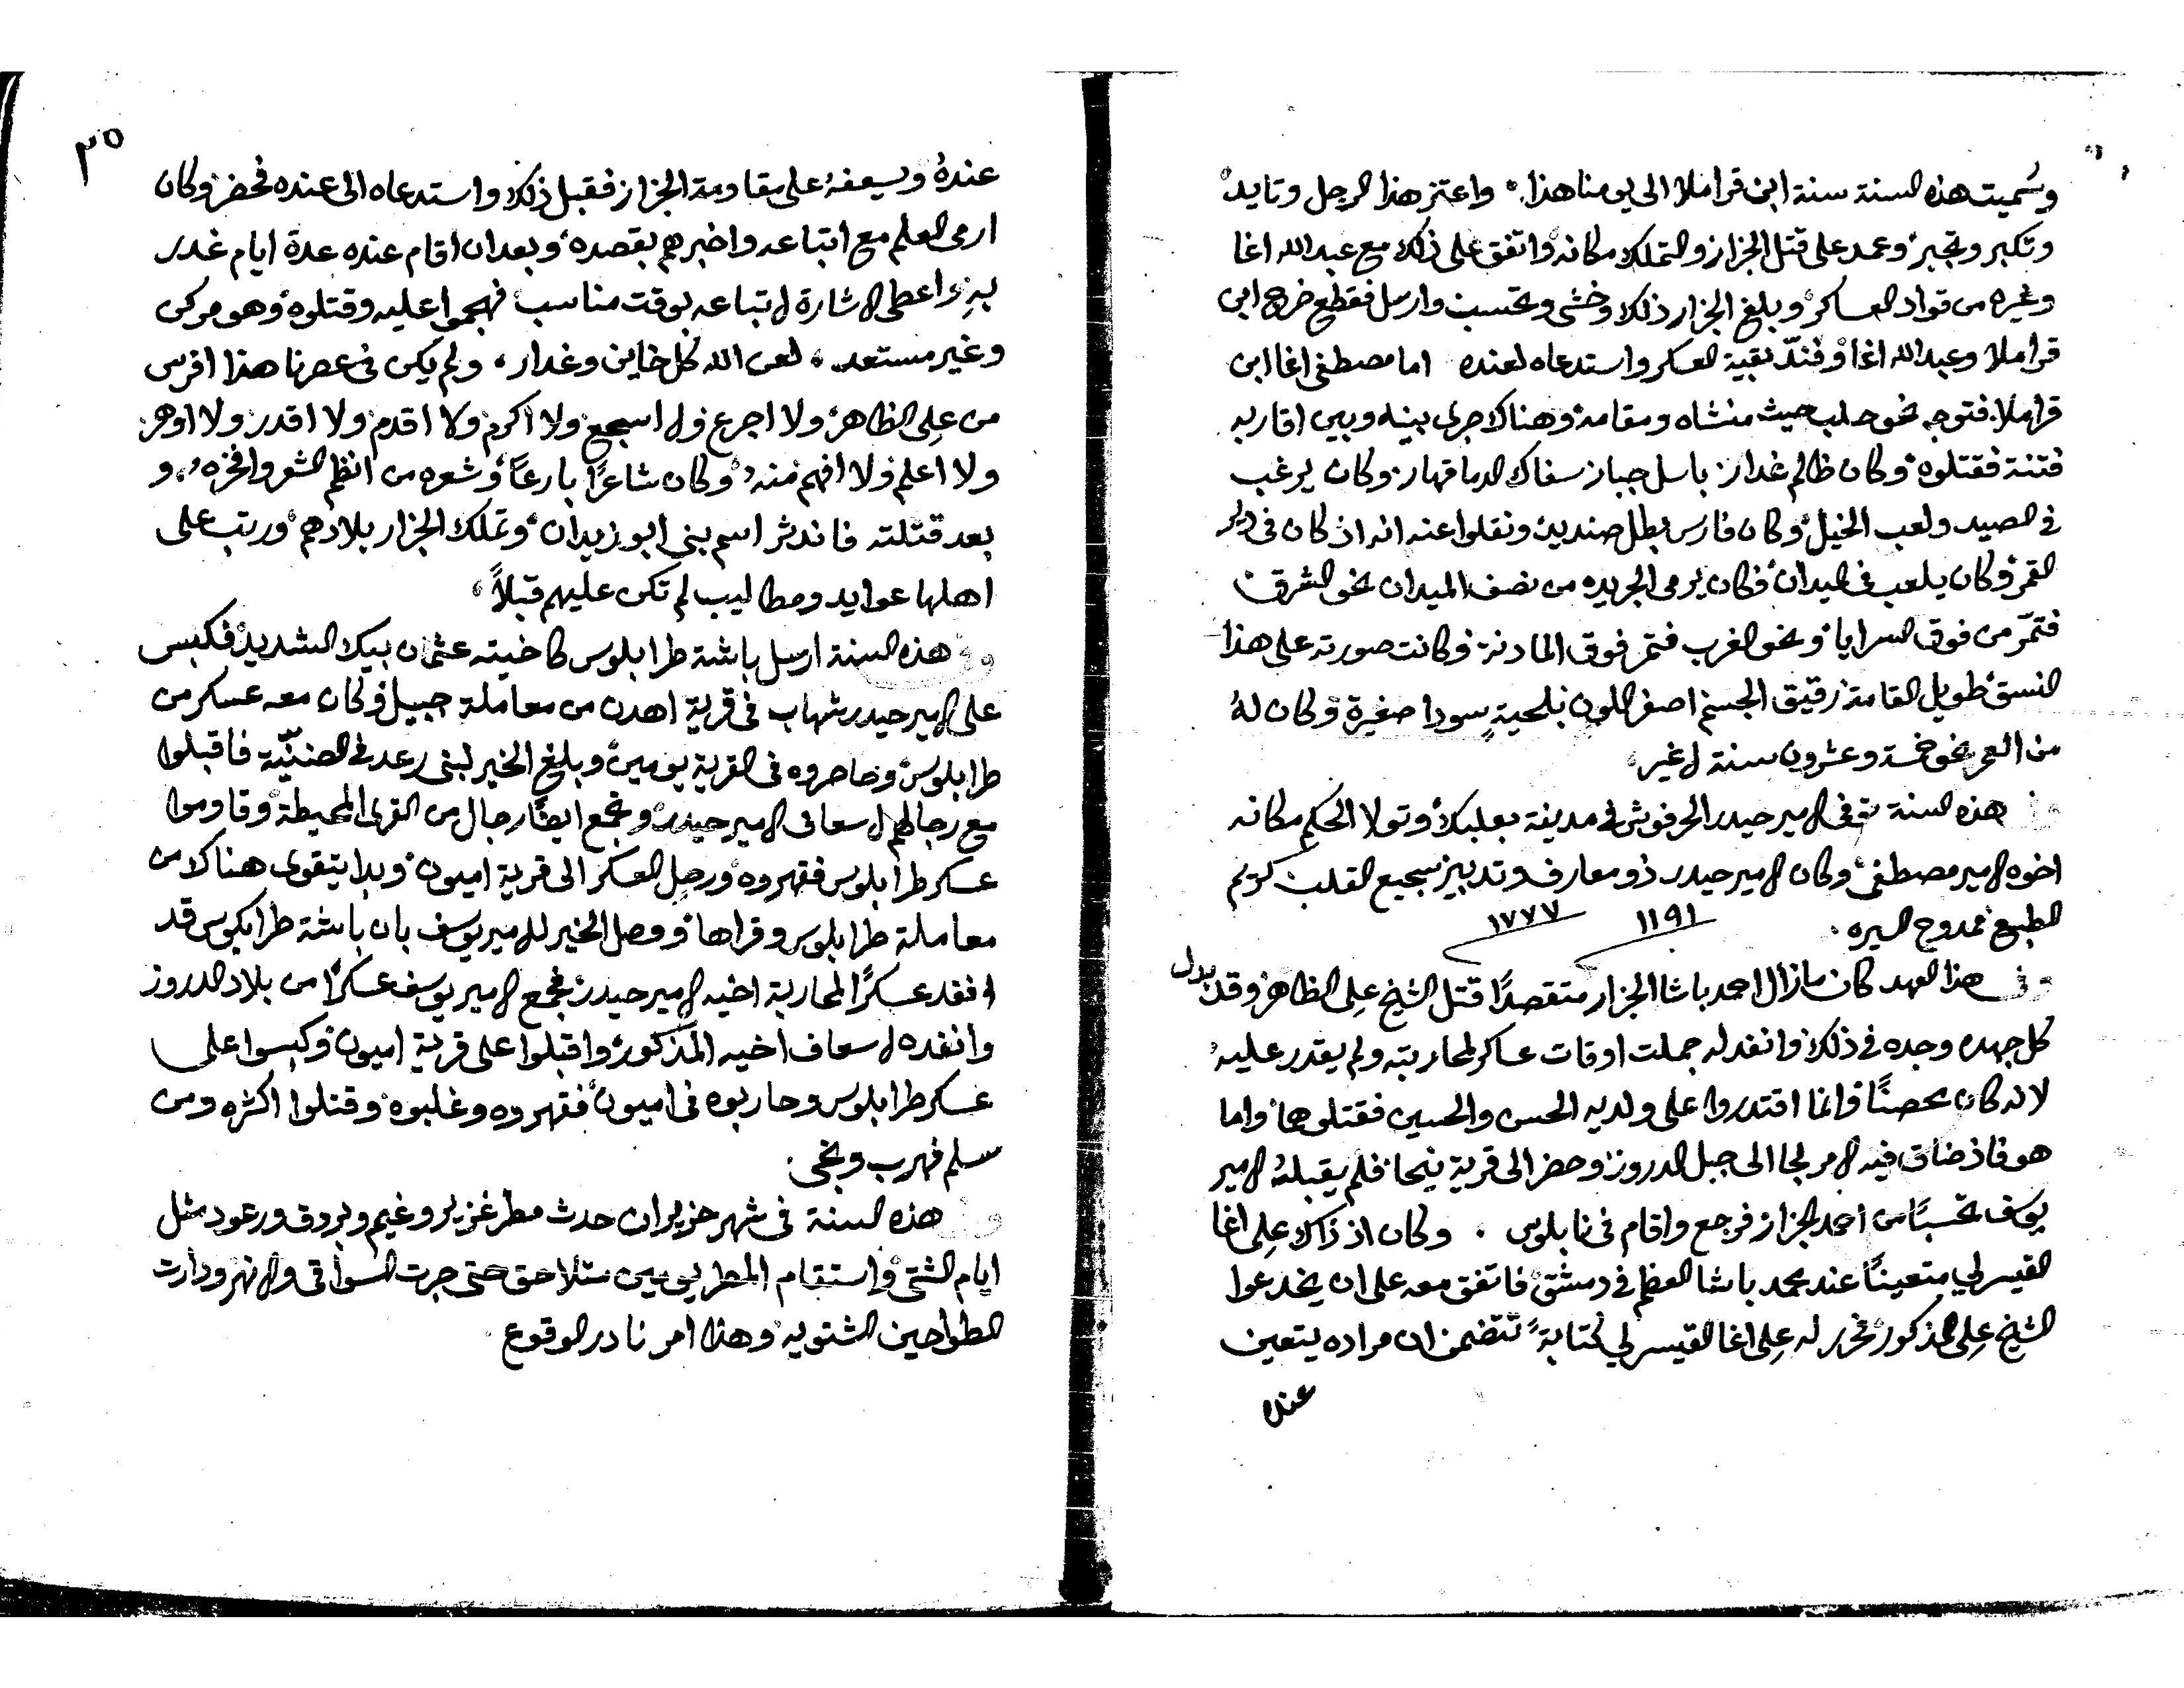 وسُميت هذه السنة سنة ابن قراملا الى يومنا هذا. واعتز هذا الرجل وتايد
وتكبر وتجبر وعمد على قتل الجزار والتملك مكانه واتفق على ذلك مع عبدالله اغا
وغيره من قواد العساكر وبلغ الجزار ذلك وخشى وتحسب وارسل فقطع خرج ابن
قراملا وعبدالله اغا وفند بقية العسكر واستدعاه لعنده اما مصطفى اغا ابن
قراملا فتوجه نحو حلب حيث منشاه ومقامه وهناك جرى بينه وبين اقاربه
فتنة فقتلوه وكان ظالم غدار باسل جبار سفاك الدما قهار وكان يرغب
فى الصيد ولعب الخيل وكان فارس بطل صنديد ونقلوا عنه انه اذ كان فى دير
القمر وكان يلعب فى الميدان فكان يرمى الجريده من نصف الميدان نحو الشرق
فتمرّ من فوق السرايا ونحو الغرب فتمر فوق المادنة وكانت صورته على هذا
النسق طويل القامة رقيق الجسم اصفر اللون بلحيةٍ سودا صغيرة وكان لهُ
من العمر نحو خمسة وعشرون سنة لا غير
وفى هذه السنة توفى الامير حيدر الحرفوش فى مدينة بعلبك وتولا الحكم مكانه
اخوه الامير مصطفى وكان الامير حيدر ذو معارف وتدبير سجيع القلب كريم
الطبع ممدوح السيره.
١١٩١ ١٧٧٧
وفى هذا العهد كان مازال احمد باشا الجزار متقصدًا قتل الشيخ علِى الظاهر وقد بدل
كل جهده وجده فى ذلك وانفد له جملت اوقات عساكر لمحاربته ولم يقدر عليهُ
لانه كان محصنًا وانما اقتدروا على ولديه الحسن والحسين فقتلوهما واما
هو فاذ ضاق فيه الامر لجا الى جبل الدروز وحضر الى قرية نيحا فلم يقبلهُ الامير
يوسف تحسبًا من احمد الجزار فرجع واقام فى نابلوس. وكان اذ ذاك علِى اغا
القيسرلي متعينًا عند محمد باشا العظم فى دمشق فاتفق معه على ان يخدعوا
الشيخ علِى المذكور فحرر له علِى اغا القيسرلي كتابةً تتضمن ان مراده يتعين
عنده
٣٥
عندهُ ويسعفهُ على مقاومة الجزار فقبل ذلك واستدعاه الى عنده فحضر وكان
ارمى العلم مع اتباعه واخبرهم بقصده وبعد ان اقام عنده عدة ايام غدر
بهِ واعطى الاشارة لاتباعه بوقت مناسب فهجموا عليه وقتلوه وهو مركى
وغير مستعد، لعن الله كل خاين وغدار، ولم يكن فى عصرنا هذا افرس
من علِى الظاهر ولا اجرع ولا اسجع ولا اكرم ولا اقدم ولا اقدر ولا اوهر
ولا اعلم ولا افهم منه وكان شاعرًا بارعًا وشعره من انظم الشعر وافخره، و
بعد قتلته فاندثر اسم بنى ابو زيدان وتملك الجزار بلادهم ورتب على
اهلها عوايد ومطاليب لم تكن عليهم قبلاً
وفى هذه السنة ارسل باشة طرابلوس كاخيته عثمان بيك الشديد فكبس
على الامير حيدر شهاب فى قرية اهدن من معاملة جبيل وكان معه عسكر من
طرابلوس وحاصروه فى القرية يومين وبلغ الخبر لبنى رعد فى الضنيّة فاقبلوا
مع رجالهم لاسعاف الامير حيدر وتجمع ايضًا رجال من القرى المحيطة وقاوموا
عسكر طرابلوس فقهروه ورحل العسكر الى قرية اميون وبدا يتقوى هناك من
معاملة طرابلوس وقراها ووصل الخبر للامير يوسف بان باشة طرابلوس قد
انفد عسكرًا لمحاربة اخيه الامير حيدر فجمع الامير يوسف عسكرًا من بلاد الدروز
وانفده لاسعاف اخيه المذكور واقبلوا على قرية اميون وكبسوا على
عسكر طرابلوس وحاربوه فى اميون فقهروه وغلبوه وقتلوا اكثره ومن
سلم فهرب ونجى.
وفى هذه السنة فى شهر حزيران حدث مطر غزير وغيم وبروق ورعود مثل
ايام الشتى واستقام المطر يومين متلاحق حتى جرت السواقى والانهر ودارت
الطواحين الشتويه وهذا امر نادر الوقوع